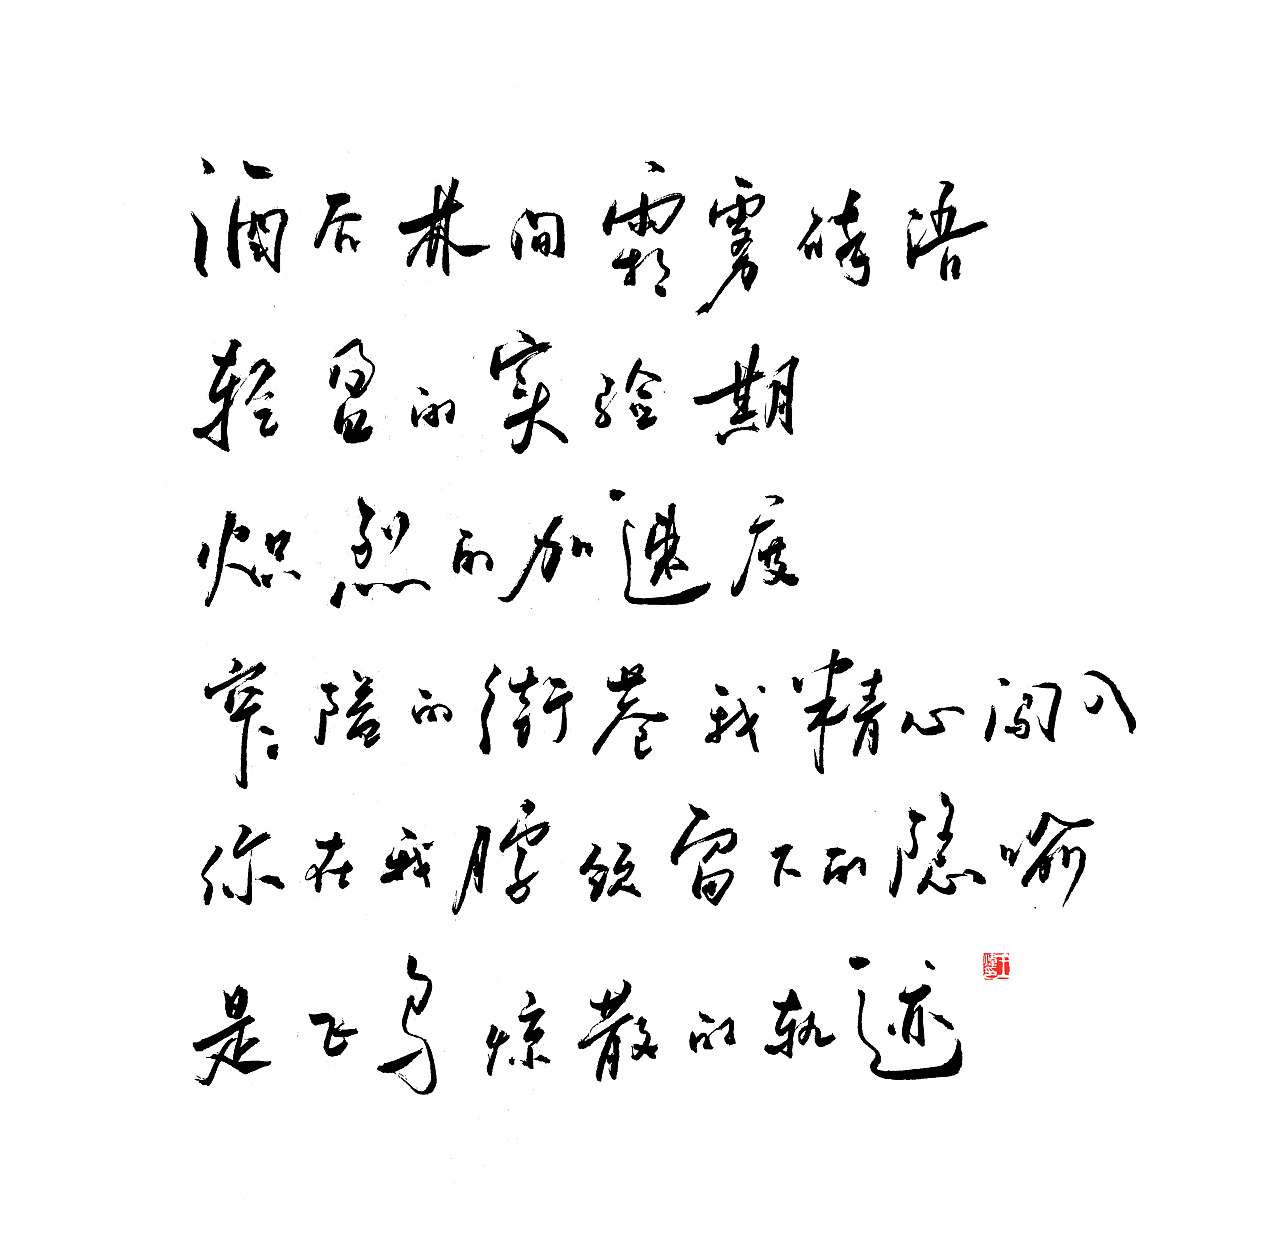 酒后林间霜雾绮语
轻盈的实验期
炽烈的加速度
窄隘的街巷我精心闯入
你在我脖颈留下的隐喻
是飞鸟惊散的轨迹